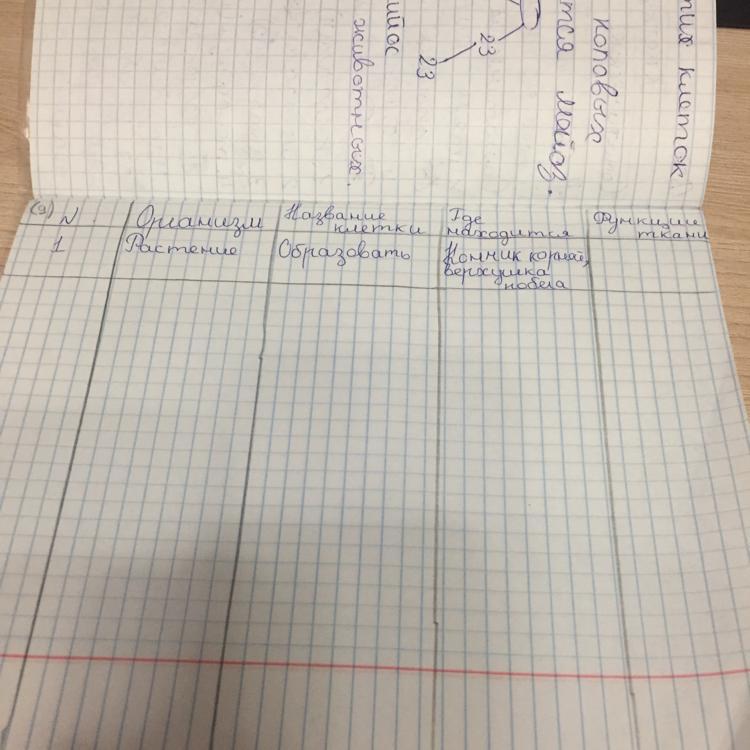 клеток.
половых
тся мейоз.
23
23
животных.
(э) N Организм Название клетки Где находится Функции ткани
1 Растение Образовать Кончик корней, верхушка побега